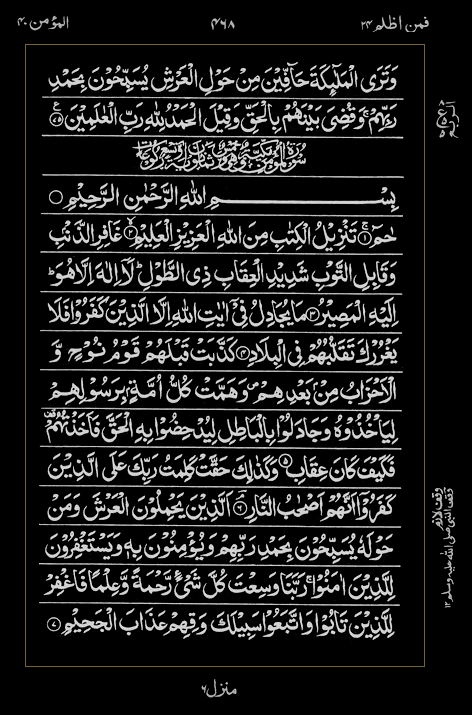 فمن اظلم ٢٤ ٤٦٨ المؤمن ٤٠
وَتَرَى الْمَلٰٓئِكَةَ حَآفِّيْنَ مِنْ حَوْلِ الْعَرْشِ يُسَبِّحُوْنَ بِحَمْدِ
رَبِّهِمْ ۚ وَقُضِىَ بَيْنَهُمْ بِالْحَقِّ وَقِيْلَ الْحَمْدُ لِلّٰهِ رَبِّ الْعٰلَمِيْنَ ﴿٧٥﴾
بِسْمِ اللهِ الرَّحْمٰنِ الرَّحِيْمِ
حٰمٓ ۚ ﴿١﴾ تَنْزِيْلُ الْكِتٰبِ مِنَ اللهِ الْعَزِيْزِ الْعَلِيْمِ ۙ ﴿٢﴾ غَافِرِ الذَّنْۢبِ
وَقَابِلِ التَّوْبِ شَدِيْدِ الْعِقَابِ ذِى الطَّوْلِ ؕ لَآ اِلٰهَ اِلَّا هُوَ ؕ
اِلَيْهِ الْمَصِيْرُ ﴿٣﴾ مَا يُجَادِلُ فِىْٓ اٰيٰتِ اللهِ اِلَّا الَّذِيْنَ كَفَرُوْا فَلَا
يَغْرُرْكَ تَقَلُّبُهُمْ فِى الْبِلَادِ ﴿٤﴾ كَذَّبَتْ قَبْلَهُمْ قَوْمُ نُوْحٍ وَّ
الْاَحْزَابُ مِنْۢ بَعْدِهِمْ ۪ وَهَمَّتْ كُلُّ اُمَّةٍۢ بِرَسُوْلِهِمْ
لِيَاْخُذُوْهُ وَجَادَلُوْا بِالْبَاطِلِ لِيُدْحِضُوْا بِهِ الْحَقَّ فَاَخَذْتُهُمْ
فَكَيْفَ كَانَ عِقَابِ ﴿٥﴾ وَكَذٰلِكَ حَقَّتْ كَلِمَتُ رَبِّكَ عَلَى الَّذِيْنَ
كَفَرُوْٓا اَنَّهُمْ اَصْحٰبُ النَّارِ ۘ ﴿٦﴾ اَلَّذِيْنَ يَحْمِلُوْنَ الْعَرْشَ وَمَنْ
حَوْلَهٗ يُسَبِّحُوْنَ بِحَمْدِ رَبِّهِمْ وَيُؤْمِنُوْنَ بِهٖ وَيَسْتَغْفِرُوْنَ
لِلَّذِيْنَ اٰمَنُوْا ۚ رَبَّنَا وَسِعْتَ كُلَّ شَىْءٍ رَّحْمَةً وَّعِلْمًا فَاغْفِرْ
لِلَّذِيْنَ تَابُوْا وَاتَّبَعُوْا سَبِيْلَكَ وَقِهِمْ عَذَابَ الْجَحِيْمِ ﴿٧﴾
وقف لازم
وقف النبي صلى الله عليه وسلم ١٢
منزل ٦